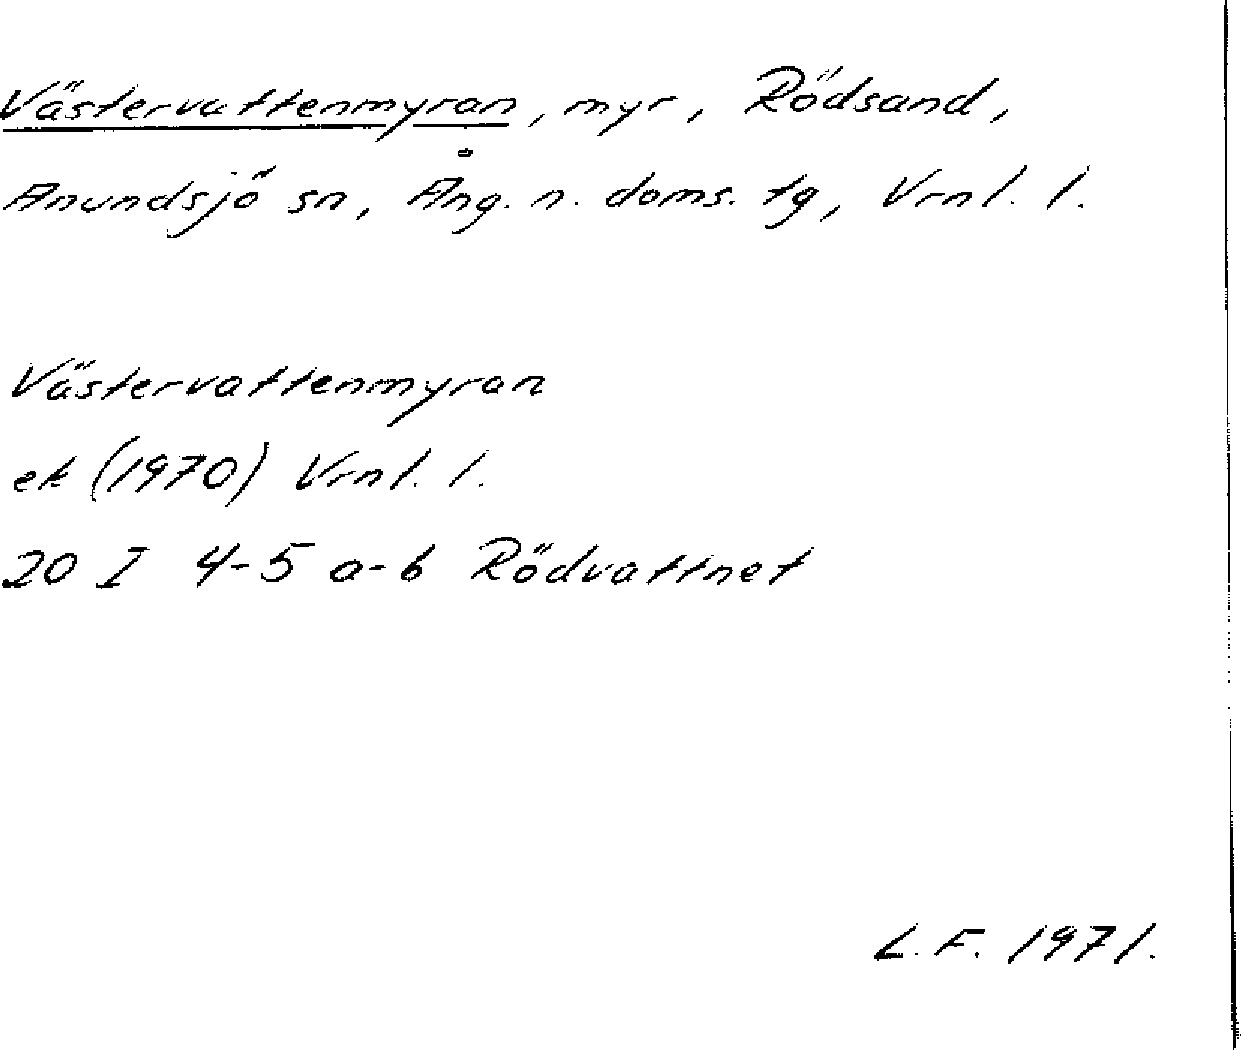 Västervattenmyran, myr, Rödsand,
Anundsjö sn, Ång. n. doms. tg, Vrnl. l.
Västervattenmyran
ek (1970) Vrnl. l.
20 I 4-5 a-b Rödvattnet
L.F. 1971.